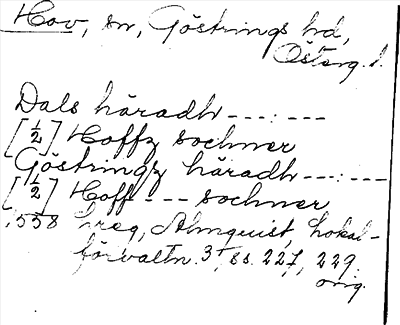 Hov, sn, Göstrings hd,
Östterg. l.
Dals häradh ---:---
[½] Hoffz sochner
Göstringz häradh ---:---
[½] Hoff --- sochner
1558 Almquist, Lokal-
förvaltn. 3, ss. 227, 229.
orig.